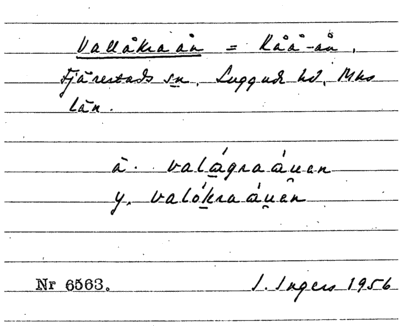 Vallåkraån = Råå-ån,
Fjärestads sn. Luggude hd. Mhs
län.
ä. valágraáuen
y. valókraáuen
Nr 6563. I. Ingers 1956